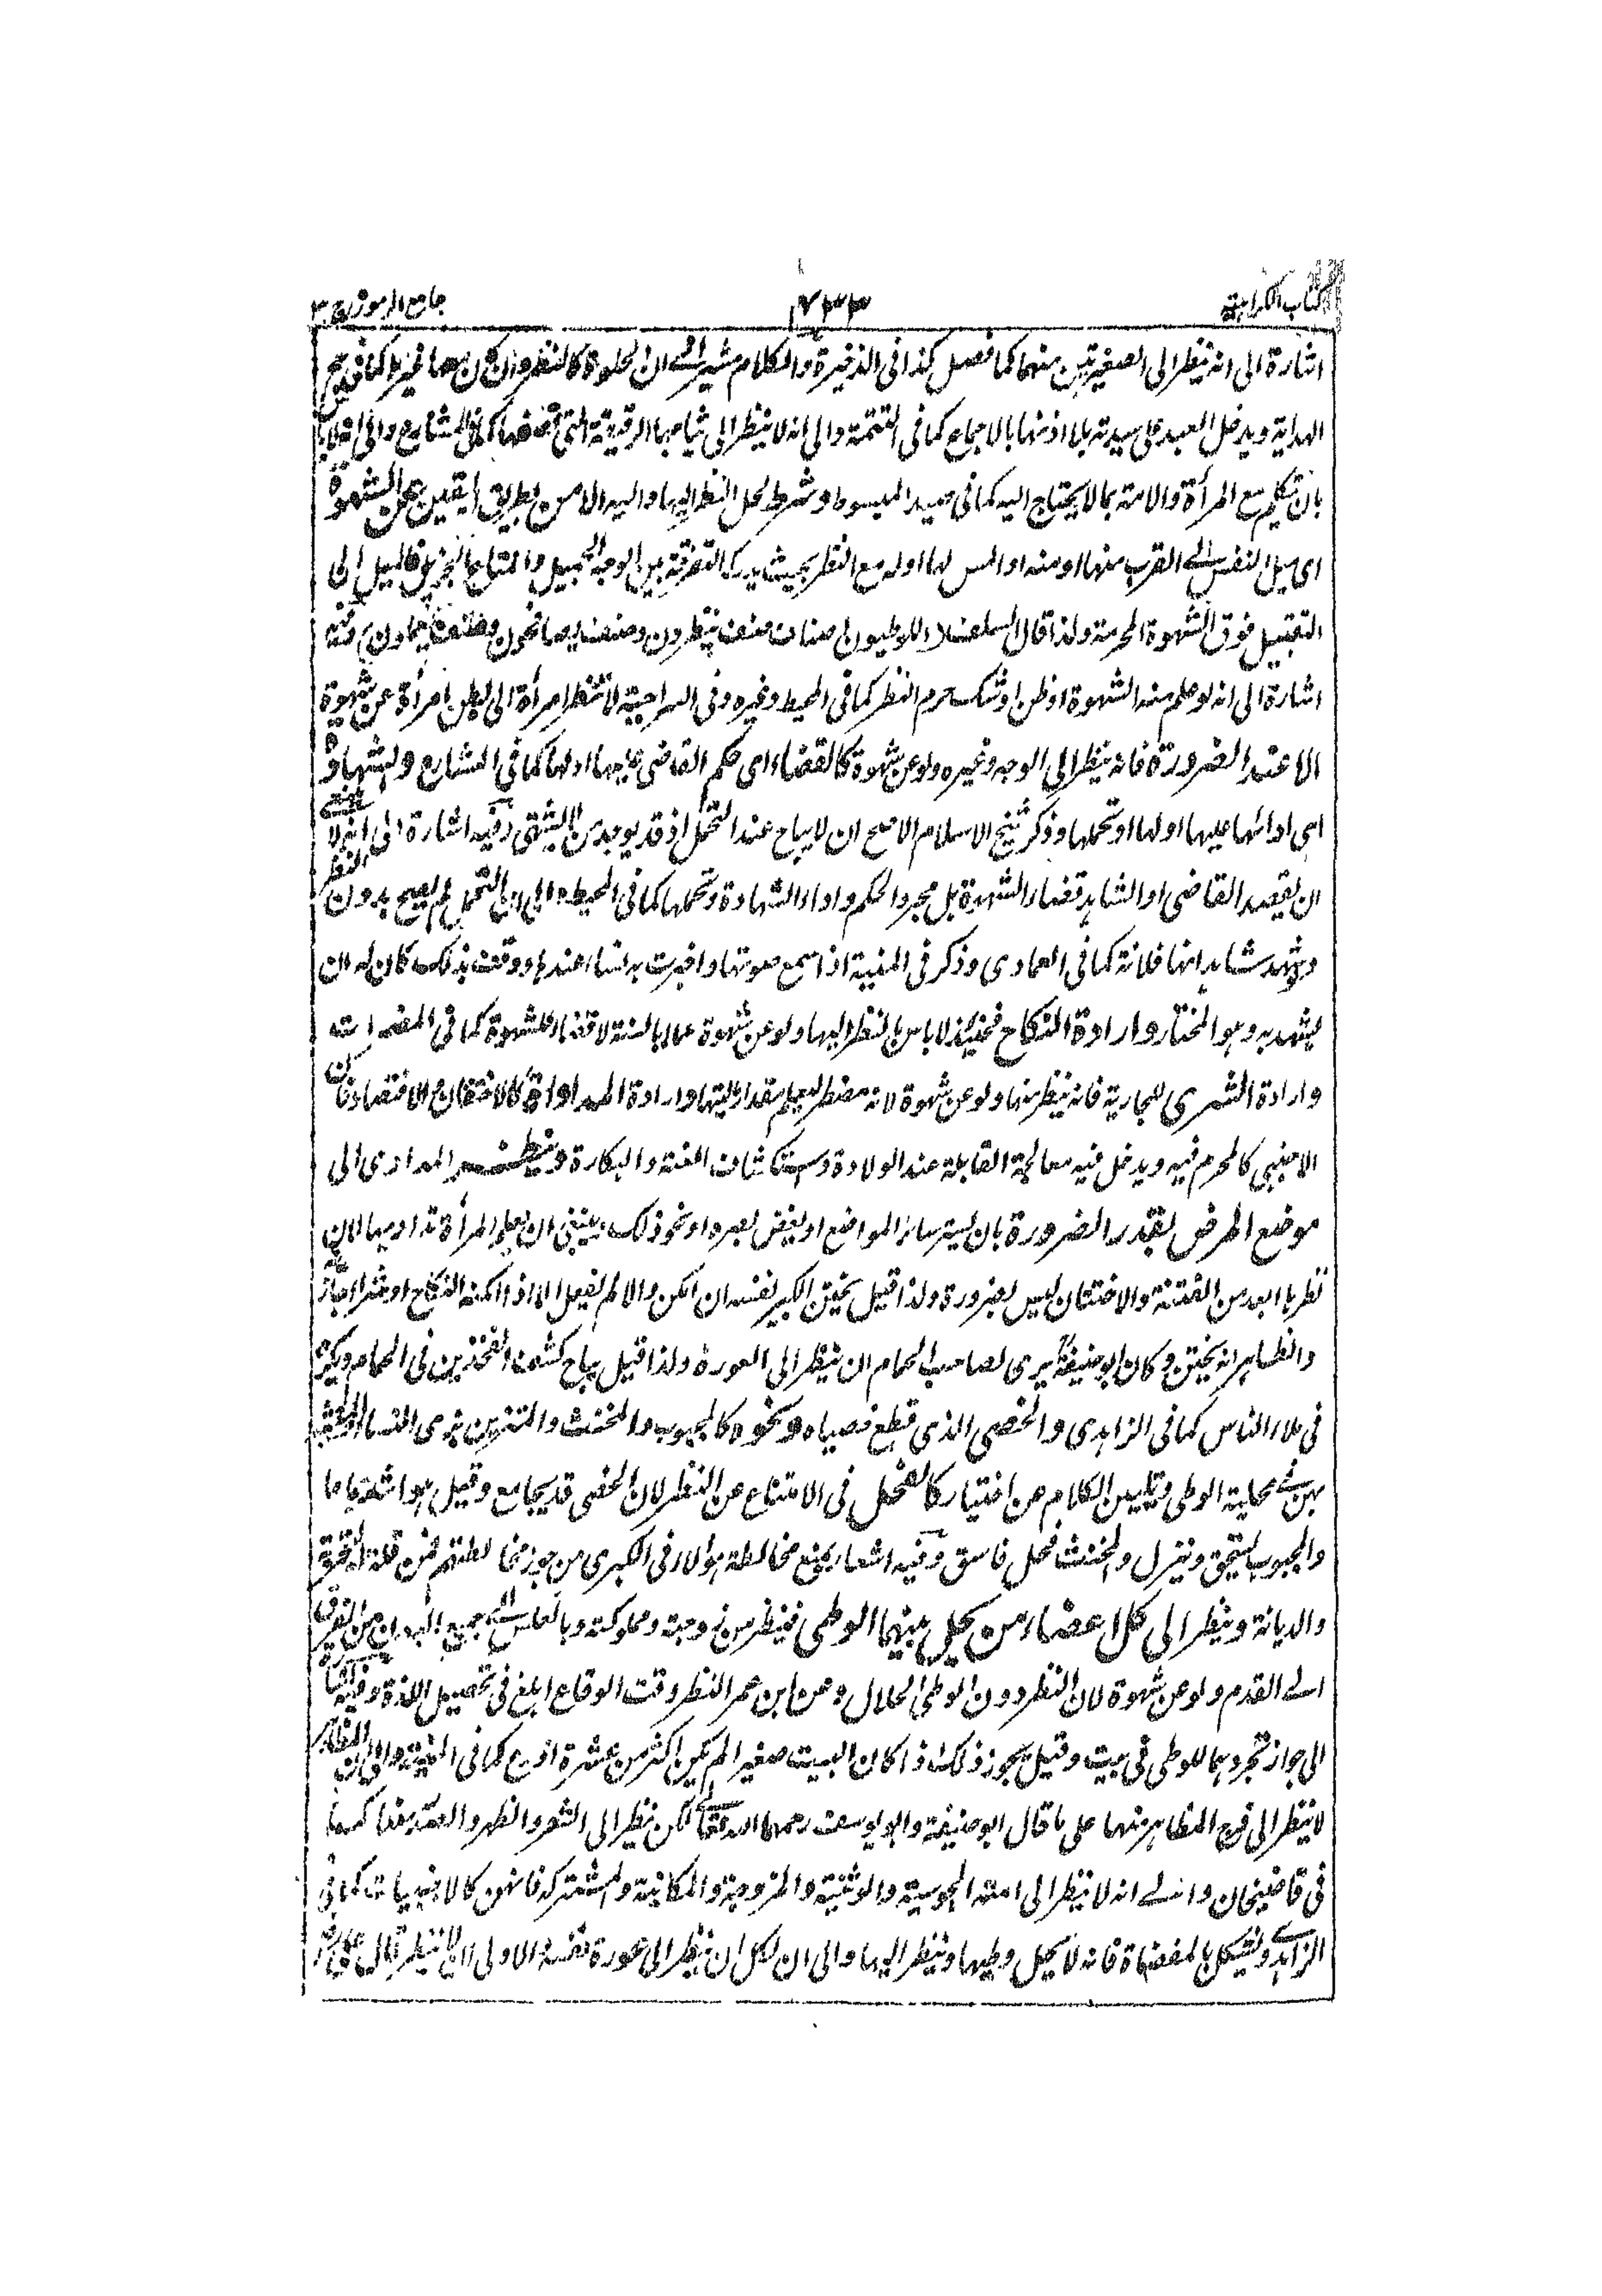 كتاب الكراهية
جامع الرموز ج ٣
اشارة الى انه ينظر الى الصغيرتين منهما كما فصل كذا فى الذخيرة والكلام مشير الى ان الخلوة كالنظر وان كان معها غيرها كما فى
الهداية ويدخل العبد على سيدته بلا اذنها بالاجماع كما فى التتمة والى انه لا ينظر الى ثيابها الرقيقة التى تصفها كما فى المشارع والى انه لا
بان تكلم مع المرأة والامة بما لا يحتاج اليه كما فى صيد المبسوط وشرط لحل النظر اليها واليه الامن بطريق اليقين عن الشهوة
اى ميل النفس الى القرب منها او منه او المس لها او له مع النظر بحيث يدرك التفرقة بين الوجه الجميل والمتاع الجزيل فالميل الى
التقبيل فوق الشهوة المحرمة ولذا قال السلف اللوطيون اصناف صنف ينظرون وصنف يصافحون وصنف يعملون وفيه
اشارة الى انه لو علم منه الشهوة او ظن او شك حرم النظر كما فى المحيط وغيره وفى السراجية لا تنظر امرأة الى بطن امرأة عن شهوة
الا عند الضرورة فانه ينظر الى الوجه وغيره ولو عن شهوة كالقضاء اى حكم القاضى عليها او لها كما فى المشارع والشهادة
اى ادائها عليها او لها او تحملها وذكر شيخ الاسلام الاصح ان لا يباح عند التحمل اذ قد يوجد من لا يشتهى وفيه اشارة الى انه لا ينبغى
ان يقصد القاضى او الشاهد قضاء الشهوة بل مجرد الحكم واداء الشهادة وتحملها كما فى المحيط والى ان التحمل لم يصح بدون النظر
وشهد شاهد انها فلانة كما فى العمادى وذكر فى المنية اذا سمع صوتها واخبرت به نساء عندها ووقعت بذلك كان له ان
يشهد به وهو المختار وارادة النكاح فحينئذ لا باس بالنظر اليها ولو عن شهوة عملا بالسنة لا قضاء للشهوة كما فى المضمرات
وارادة الشرى للجارية فانه ينظر منها ولو عن شهوة لانه مضطر ليعلم مقدار ماليتها وارادة المداواة كالاحتقان والافتصاد فان
الاجنبى كالمحرم فيه ويدخل فيه معالجة القابلة عند الولادة واستكشاف العنة والبكارة وينظر المداوى الى
موضع المرض بقدر الضرورة بان يستر سائر المواضع او يغض بصره او نحو ذلك وينبغى ان يعلم المرأة تداويها لان
نظرها ابعد من الفتنة والاختتان ليس بضرورة ولذا قيل يختن الكبير نفسه ان امكن والا لم يفعل الا اذا امكنه النكاح او شراء جارية
والظاهر انه يختن وكان ابو حنيفة يرى لصاحب الحمام ان ينظر الى العورة ولذا قيل يباح كشف الفخذين فى الحمام ويكره
فى ملاء الناس كما فى الزاهدى والخصى الذى قطع خصياه ونحوه كالمجبوب والمخنث والمتزين بزى النساء المتشبه
بهن فى محلية الوطى وتليين الكلام عن اختيار كالفحل فى الامتناع من النظر لان الخصى قد يجامع وقيل هو اشد جماعا
والمجبوب يستحق وينزل والمخنث فحل فاسق وفيه اشعار بمنع مخالطة هؤلاء وفى الكبرى من جوز مخالطتهم فمن قلة التجربة
والديانة وينظر الى كل اعضاء من يحل بينهما الوطى فينظر من زوجته ومملوكته وبالعكس الى جميع البدن من الفرق
الى القدم ولو عن شهوة لان النظر دون الوطى الحلال وعن ابن عمر النظر وقت الوقاع ابلغ فى تحصيل اللذة وفيه اشارة
الى جواز تجردهما للوطى فى بيت وقيل يجوز ذلك اذا كان البيت صغيرا لم يكن اكثر من عشرة اذرع كما فى المنية والى ان المظاهر
لا ينظر الى فرج المظاهر منها على ما قال ابو حنيفة وابو يوسف رحمهما الله تعالى لكن ينظر الى الشعر والظهر والصدر منها كما
فى قاضيخان والى انه لا ينظر الى امته المجوسية والوثنية والمزوجة والمكاتبة والمشتركة فانهن كالاجنبيات كما فى
الزاهدى ويشكل بالمفضاة فانه لا يحل وطيها وينظر اليها والى ان لكل ان ينظر الى عورة نفسه والاولى ان لا ينظر